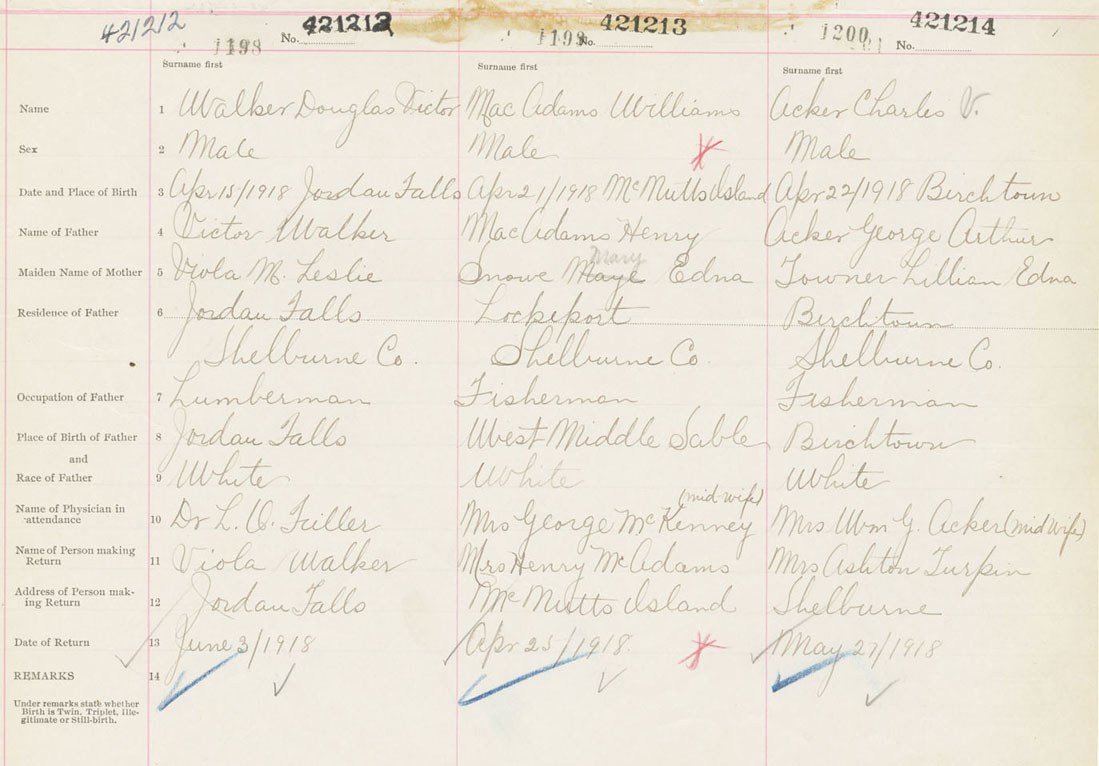 421212
1198 No. 421212 1199 No. 421213 1200 No. 421214
Surname first Surname first Surname first
Name 1 Walker Douglas Victor Mac Adams Williams Acker Charles V.
Sex 2 Male Male Male
Date and Place of Birth 3 Apr 15/1918 Jordan Falls Apr 21/1918 McNutts Island Apr 22/1918 Birchtown
Name of Father 4 Victor Walker Mac Adams Henry Acker George Arthur
Mary
Maiden Name of Mother 5 Viola M. Leslie Snowe Maye Edna Towner Lillian Edna
Residence of Father 6 Jordan Falls Lockeport Birchtown
Shelburne Co. Shelburne Co. Shelburne Co.
Occupation of Father 7 Lumberman Fisherman Fisherman
Place of Birth of Father 8 Jordan Falls West Middle Sable Birchtown
and
Race of Father 9 White White White
(mid wife)
Name of Physician in attendance 10 Dr L. O. Fuller Mrs George McKenney Mrs Wm G. Acker (mid wife)
Name of Person making Return 11 Viola Walker Mrs Henry McAdams Mrs Ashton Turpin
Address of Person making Return 12 Jordan Falls McNutts Island Shelburne
Date of Return 13 June 3/1918 Apr 25/1918. May 27/1918
REMARKS 14
Under remarks state whether
Birth is Twin, Triplet, Ille-
gitimate or Still-birth.